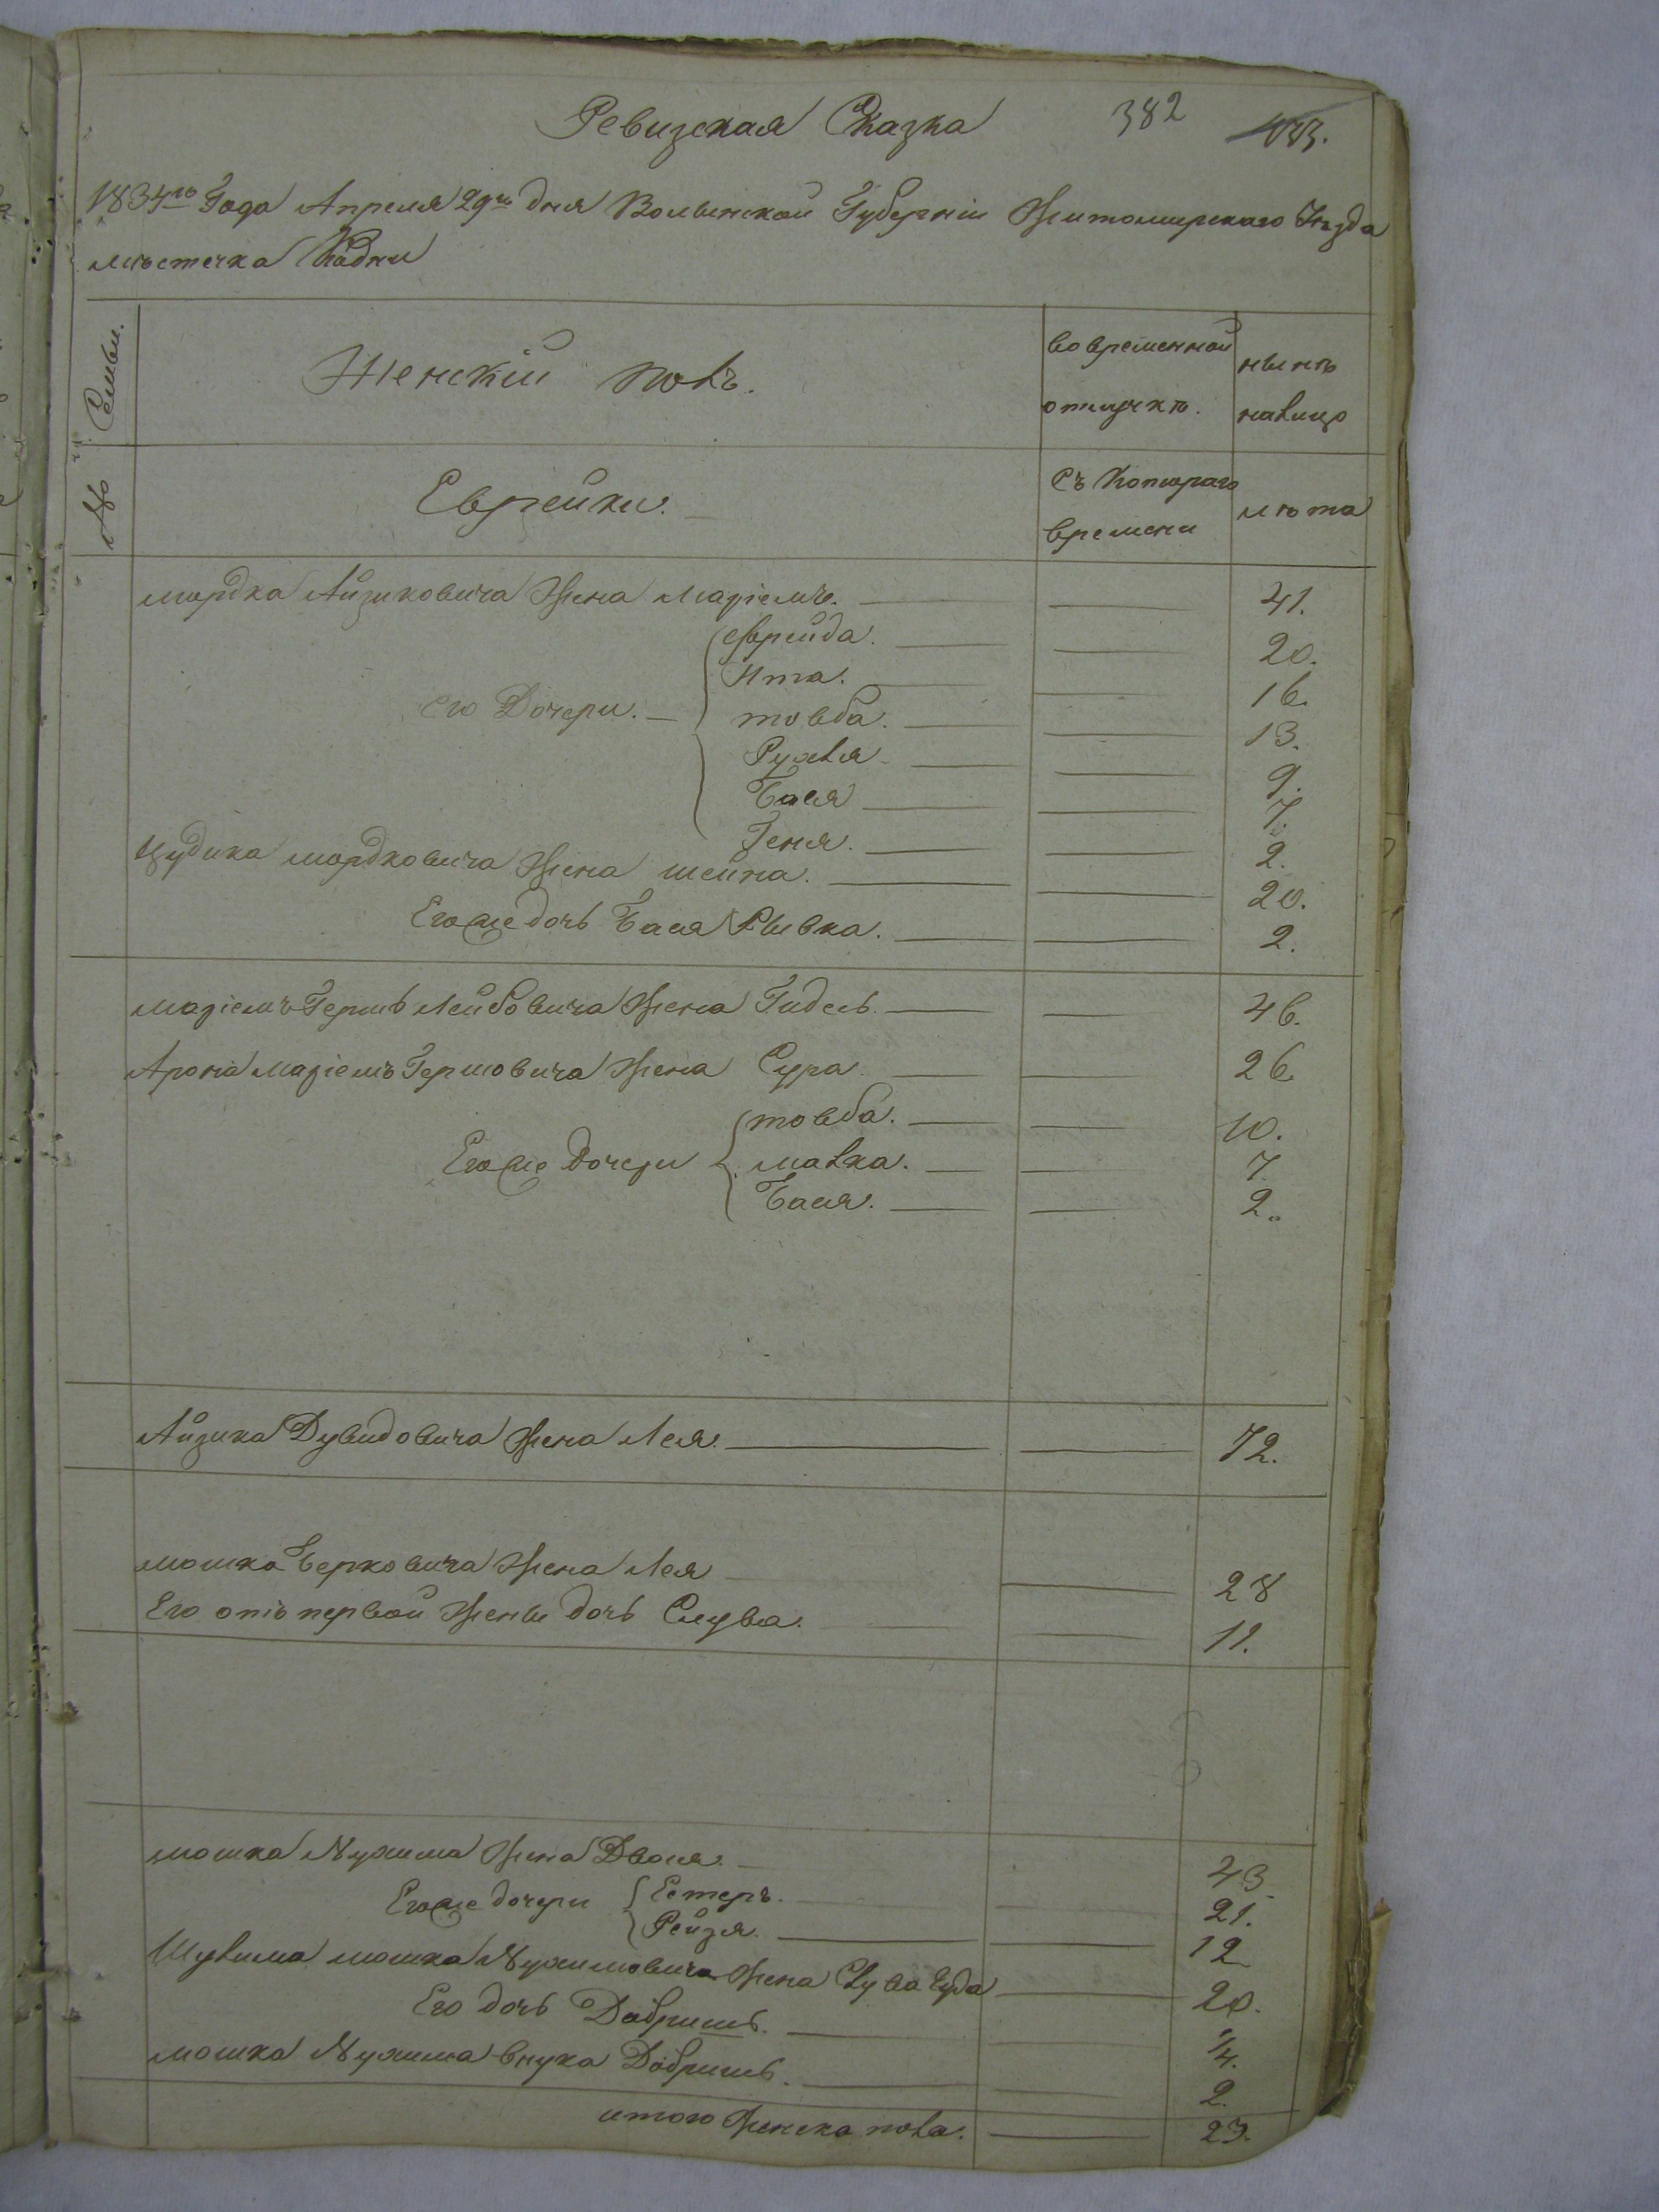 Ревизская Сказка 382
1834го Года Апреля 29го дня Волынской Губерніи Житомирскаго Уѣзда
мѣстечка Кодни
№ Семьи.
Женскій полъ.
во временной отлучкѣ.
нынѣ налицо
Еврейки.
Съ котораго времени
лѣта
мордка Айзиковича Жена Маріемъ. 41.
его Дочери.
Фрейда. 20.
Ита. 16.
товба. 13.
Рухля 9.
Бася 7.
Геня. 2.
мордковича Жена шейна. 20.
Егоже дочь Бася Рывка. 2.
Гершъ Лейбовича Жена Гидесь. 46.
Арона Гершовича Жена Сура. 26
Егоже дочери
товба. 10.
малка. 7.
Бася. 2.
Айзика Дувидовича Жена Лея. 72.
мошка Берковича Жена Лея 28
Его отъ первой Жены дочь Слува. 11.
мошка Нухима Жена Двося. 43.
Егоже дочери
Естеръ. 21.
Рейзя. 12
Шулима мошка Нухимовича Жена Слува 20.
Его дочь Добришъ. 1/4.
мошка Нухима внука Добришъ. 2.
итого Женска пола. 23.